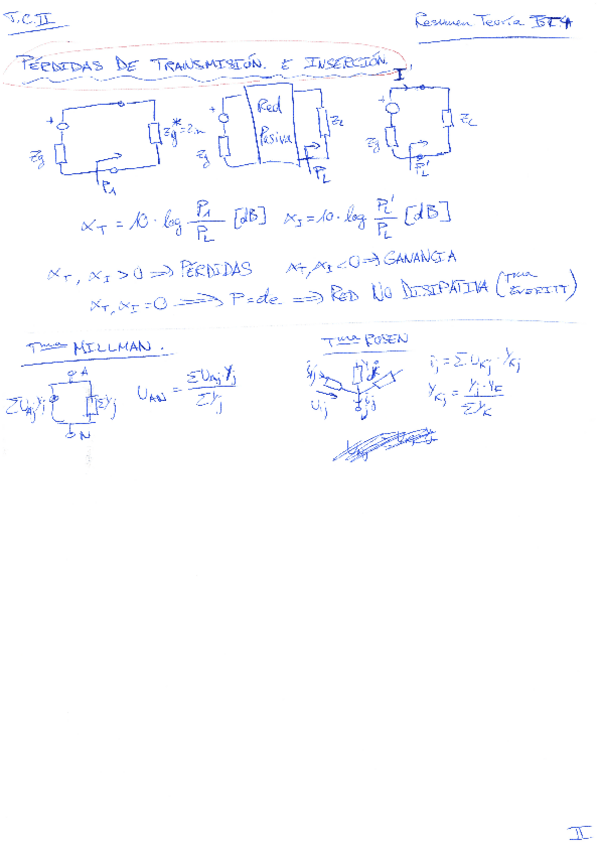 T.C. II
Resumen Teoría
PÉRDIDAS DE TRANSMISIÓN. E INSERCIÓN.
I
+ Zg Zg* = Zin P1
+ Zg Red Pasiva ZL PL
+ Zg ZL PL'
αT = 10 · log P1/PL [dB] αI = 10 · log PL'/PL [dB]
αT, αI > 0 => PÉRDIDAS αT, αI < 0 => GANANCIA
αT, αI = 0 ==> P = cte ==> RED NO DISIPATIVA (Tma EVERITT)
Tma MILLMAN.
Tma ROSEN
A
ΣUAj Yj ΣYj
N
UAN = ΣUAj·Yj / ΣYj
Uij
ij = Σ UKj · YKj
YKj = Yj · YK / ΣYK
II